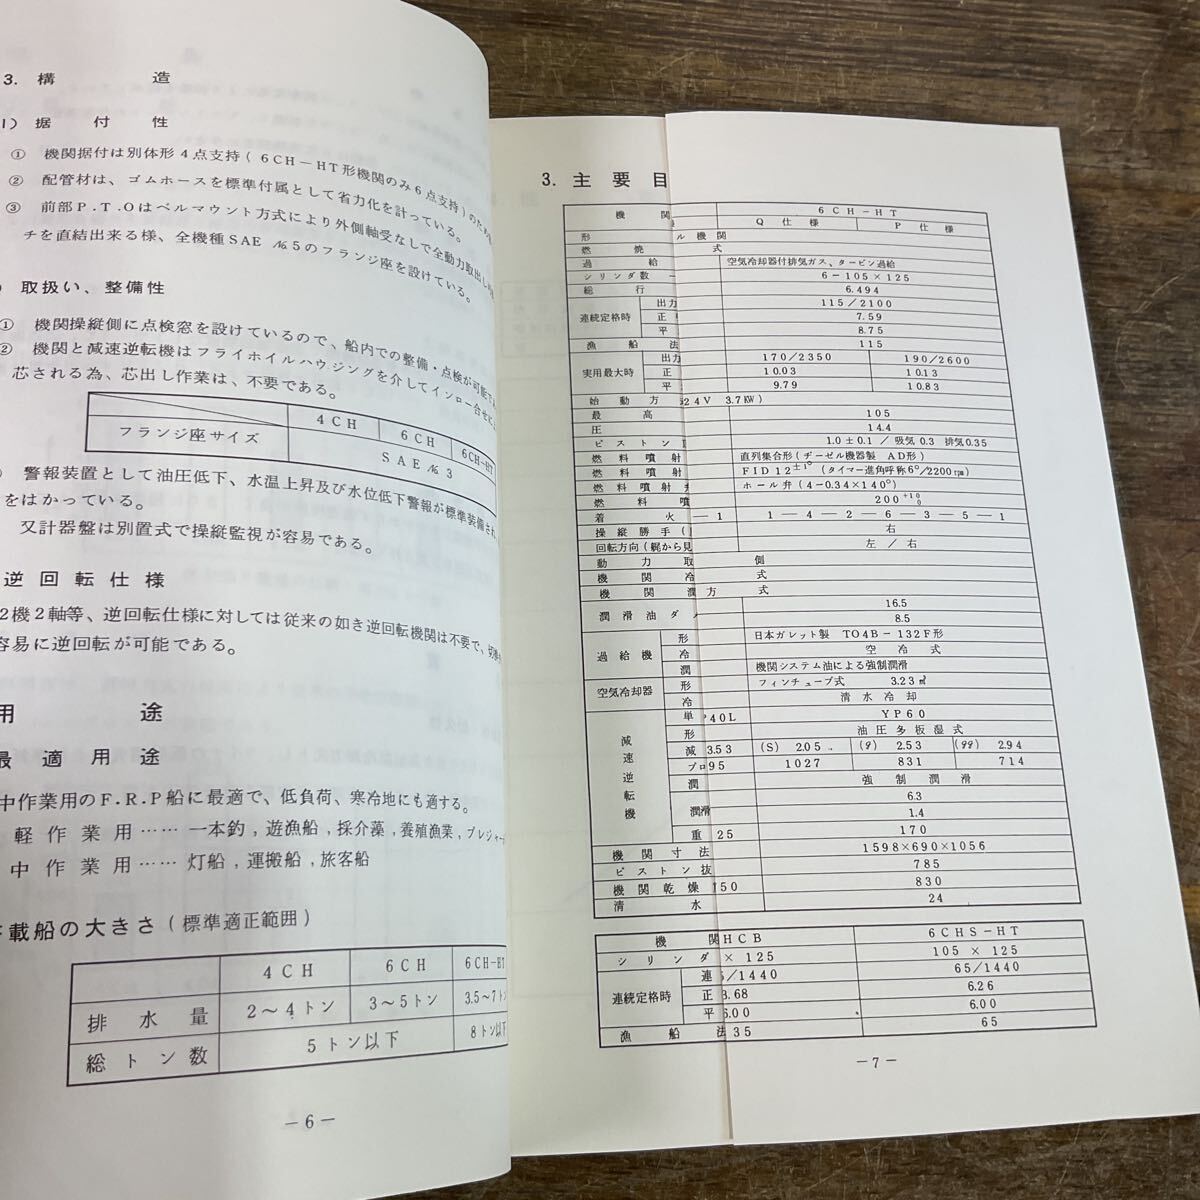 3. 構 造
1) 据 付 性
① 機関据付は別体形4点支持(6CH-HT形機関のみ6点支持)のため
② 配管材は、ゴムホースを標準付属として省力化を計っている。
③ 前部P.T.Oはベルマウント方式により外側軸受なしで全動力取出し
チを直結出来る様、全機種SAE №5のフランジ座を設けている。
) 取扱い、整備性
① 機関操縦側に点検窓を設けているので、船内での整備・点検が可能であ
② 機関と減速逆転機はフライホイルハウジングを介してインロー合せに
芯される為、芯出し作業は、不要である。
4CH 6CH 6CH-HT
フランジ座サイズ SAE № 3
) 警報装置として油圧低下、水温上昇及び水位低下警報が標準装備され
をはかっている。
又計器盤は別置式で操縦監視が容易である。
逆回転仕様
2機2軸等、逆回転仕様に対しては従来の如き逆回転機関は不要で、
容易に逆回転が可能である。
用 途
最適用途
中作業用のF.R.P船に最適で、低負荷、寒冷地にも適する。
軽作業用……一本釣,遊漁船,採介藻,養殖漁業,プレジャー
中作業用……灯船,運搬船,旅客船
載船の大きさ(標準適正範囲)
4CH 6CH 6CH-HT
排水量 2~4トン 3~5トン 3.5~7トン
総トン数 5トン以下 8トン以下
-6-
3. 主 要 目
機 関 6CH-HT
Q 仕 様 P 仕 様
形 ル機関
燃 焼 式
過 給 空気冷却器付排気ガス、タービン過給
シリンダ数 6-105×125
総 行 6.494
連続定格時 出力 115/2100
正 7.59
平 8.75
漁 船 法 115
実用最大時 出力 170/2350 190/2600
正 10.03 10.13
平 9.79 10.83
始動方 24V 3.7KW)
最 高 105
圧 14.4
ピストン 1.0±0.1 / 吸気0.3 排気0.35
燃料噴射 直列集合形(ヂーゼル機器製 AD形)
燃料噴射 FID12±1° (タイマー進角呼称6°/2200rpm)
燃料噴射 ホール弁(4-0.34×140°)
燃 料 噴 200+10 0
着 火 -1 1-4-2-6-3-5-1
操縦勝手( 右
回転方向(艉から見 左/右
動 力 取 側
機 関 冷 式
機 関 潤 方 式
潤滑油 16.5
8.5
過給機 形 日本ガレット製 TO4B-132F形
冷 空 冷 式
潤 機関システム油による強制潤滑
空気冷却器 形 フィンチューブ式 3.23㎡
冷 清水冷却
減速逆転機 単 P40L YP60
形 油圧多板湿式
減 3.53 (S) 2.05 (9) 2.53 (99) 2.94
プロ 95 1027 831 714
潤 強制潤滑
潤滑 6.3
1.4
重 25 170
機関寸法 1598×690×1056
ピストン抜 785
機関乾燥 150 830
清 水 24
機 関 HCB 6CHS-HT
シリンダ × 125 105 × 125
連続定格時 連 5/1440 65/1440
正 3.68 6.26
平 6.00 6.00
漁 船 法 35 65
-7-